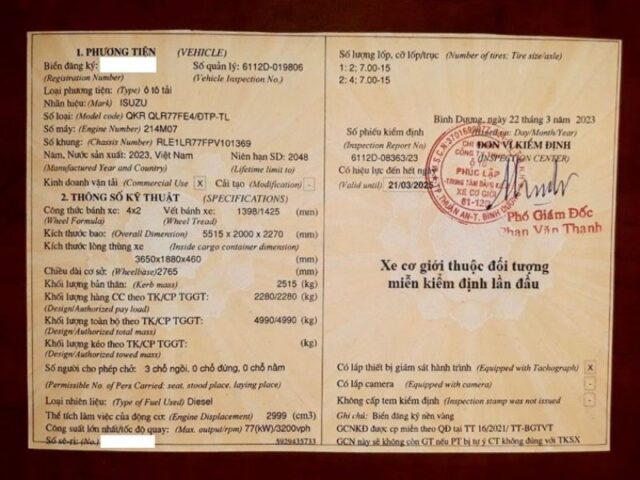 1. PHƯƠNG TIỆN (VEHICLE)
Biển đăng ký:
Số quản lý: 6112D-019806
(Registration Number)
(Vehicle Inspection No.)
Loại phương tiện: (Type) ô tô tải
Nhãn hiệu: (Mark) ISUZU
Số loại: (Model code) QKR QLR77FE4/ĐTP-TL
Số máy: (Engine Number) 214M07
Số khung: (Chassis Number) RLE1LR77FPV101369
Năm, Nước sản xuất: 2023, Việt Nam
Niên hạn SD: 2048
(Manufactured Year and Country)
(Lifetime limit to)
Kinh doanh vận tải (Commercial Use) X
Cải tạo (Modification) -
2. THÔNG SỐ KỸ THUẬT (SPECIFICATIONS)
Công thức bánh xe: 4x2
Vết bánh xe: 1398/1425 (mm)
(Wheel Formula)
(Wheel Tread)
Kích thước bao: (Overall Dimension) 5515 x 2000 x 2270 (mm)
Kích thước lòng thùng xe (Inside cargo container dimension)
3650x1880x460 (mm)
Chiều dài cơ sở: (Wheelbase) 2765 (mm)
Khối lượng bản thân: (Kerb mass) 2515 (kg)
Khối lượng hàng CC theo TK/CP TGGT: 2280/2280 (kg)
(Design/Authorized pay load)
Khối lượng toàn bộ theo TK/CP TGGT: 4990/4990 (kg)
(Design/Authorized total mass)
Khối lượng kéo theo TK/CP TGGT: (kg)
(Design/Authorized towed mass)
Số người cho phép chở: 3 chỗ ngồi, 0 chỗ đứng, 0 chỗ nằm
(Permissible No. of Pers Carried: seat, stood place, laying place)
Loại nhiên liệu: (Type of Fuel Used) Diesel
Thể tích làm việc của động cơ: (Engine Displacement) 2999 (cm3)
Công suất lớn nhất/tốc độ quay: (Max. output/rpm) 77(kW)/3200vph
Số sê-ri: (No.)
5929435733
Số lượng lốp, cỡ lốp/trục (Number of tires: Tire size/axle)
1: 2; 7.00-15
2: 4; 7.00-15
Bình Dương, ngày 22 tháng 3 năm 2023
Day/Month/Year)
Số phiếu kiểm định
ĐƠN VỊ KIỂM ĐỊNH
(Inspection Report No)
(INSPECTION CENTER)
6112D-08363/23
Có hiệu lực đến hết ngày
(Valid until) 21/03/2025
PHÚC LẬP
TRUNG TÂM ĐĂNG KIỂM
XE CƠ GIỚI
61-12D
Phó Giám Đốc
Phan Văn Thanh
Xe cơ giới thuộc đối tượng
miễn kiểm định lần đầu
Có lắp thiết bị giám sát hành trình (Equipped with Tachograph) X
Có lắp camera (Equipped with camera) -
Không cấp tem kiểm định (Inspection stamp was not issued) -
Ghi chú: Biển đăng ký nền vàng
GCNKĐ được cp miễn theo QĐ tại TT 16/2021/ TT-BGTVT
GCN này sẽ không còn GT nếu PT bị tự ý CT không đúng với TKSX